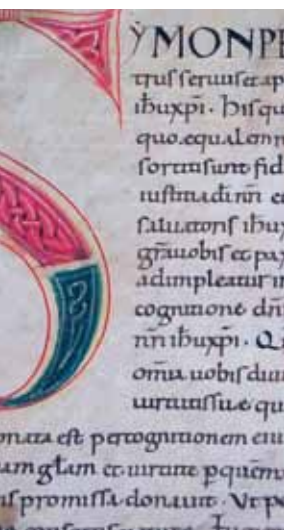 ẎMONPE
truſ ſeruuſ et ap
ihuxpi. hiſ qu
quo.equalem n
ſortiti ſunt fid
iuſtitia di nri e
ſaluatoriſ ihux
gra uobiſ et pax
adimpleatur in
cognitione dñi
nri ihu xpi. Q
omia uobiſ diui
uirtutiſ ſue qu
onata eſt per cognitionem eiu
am głam et uirtute p quem
iſ promiſſa donauit. Vt p